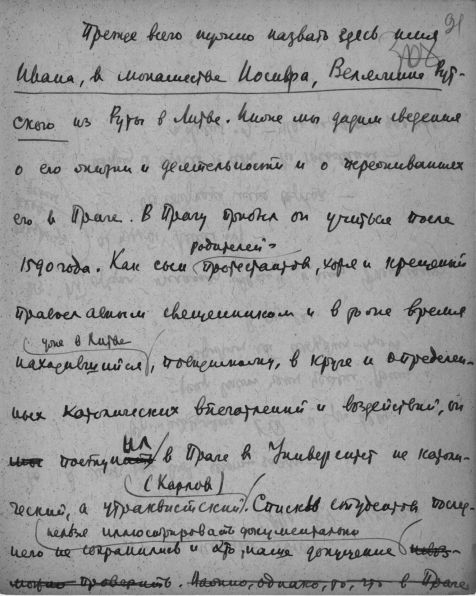 91
Прежде всего нужно назвать здесь имя
Ивана, в монашестве Иосифа, Велямина Рут-
ского из Руты в Литве. Ниже мы дадим сведения
о его жизни и деятельности и о переживаниях
его в Праге. В Прагу приехал он учиться после
родителей-
1590 года. Как сын протестантов, хотя и крещеный
православным священником и в рное время
уже в Литве
находившийся, повидимому, в круге и определен-
ных католических впечатлений и воздействий, он
поступил в Праге в Университет не католи-
(Карлов)
ческий, а утраквистский. Списков студентов послед-
нельзя иллюстрировать документально
него не сохранились и это, наше допущение невоз-
можно проверить. Можно, однако, то, что в Праге